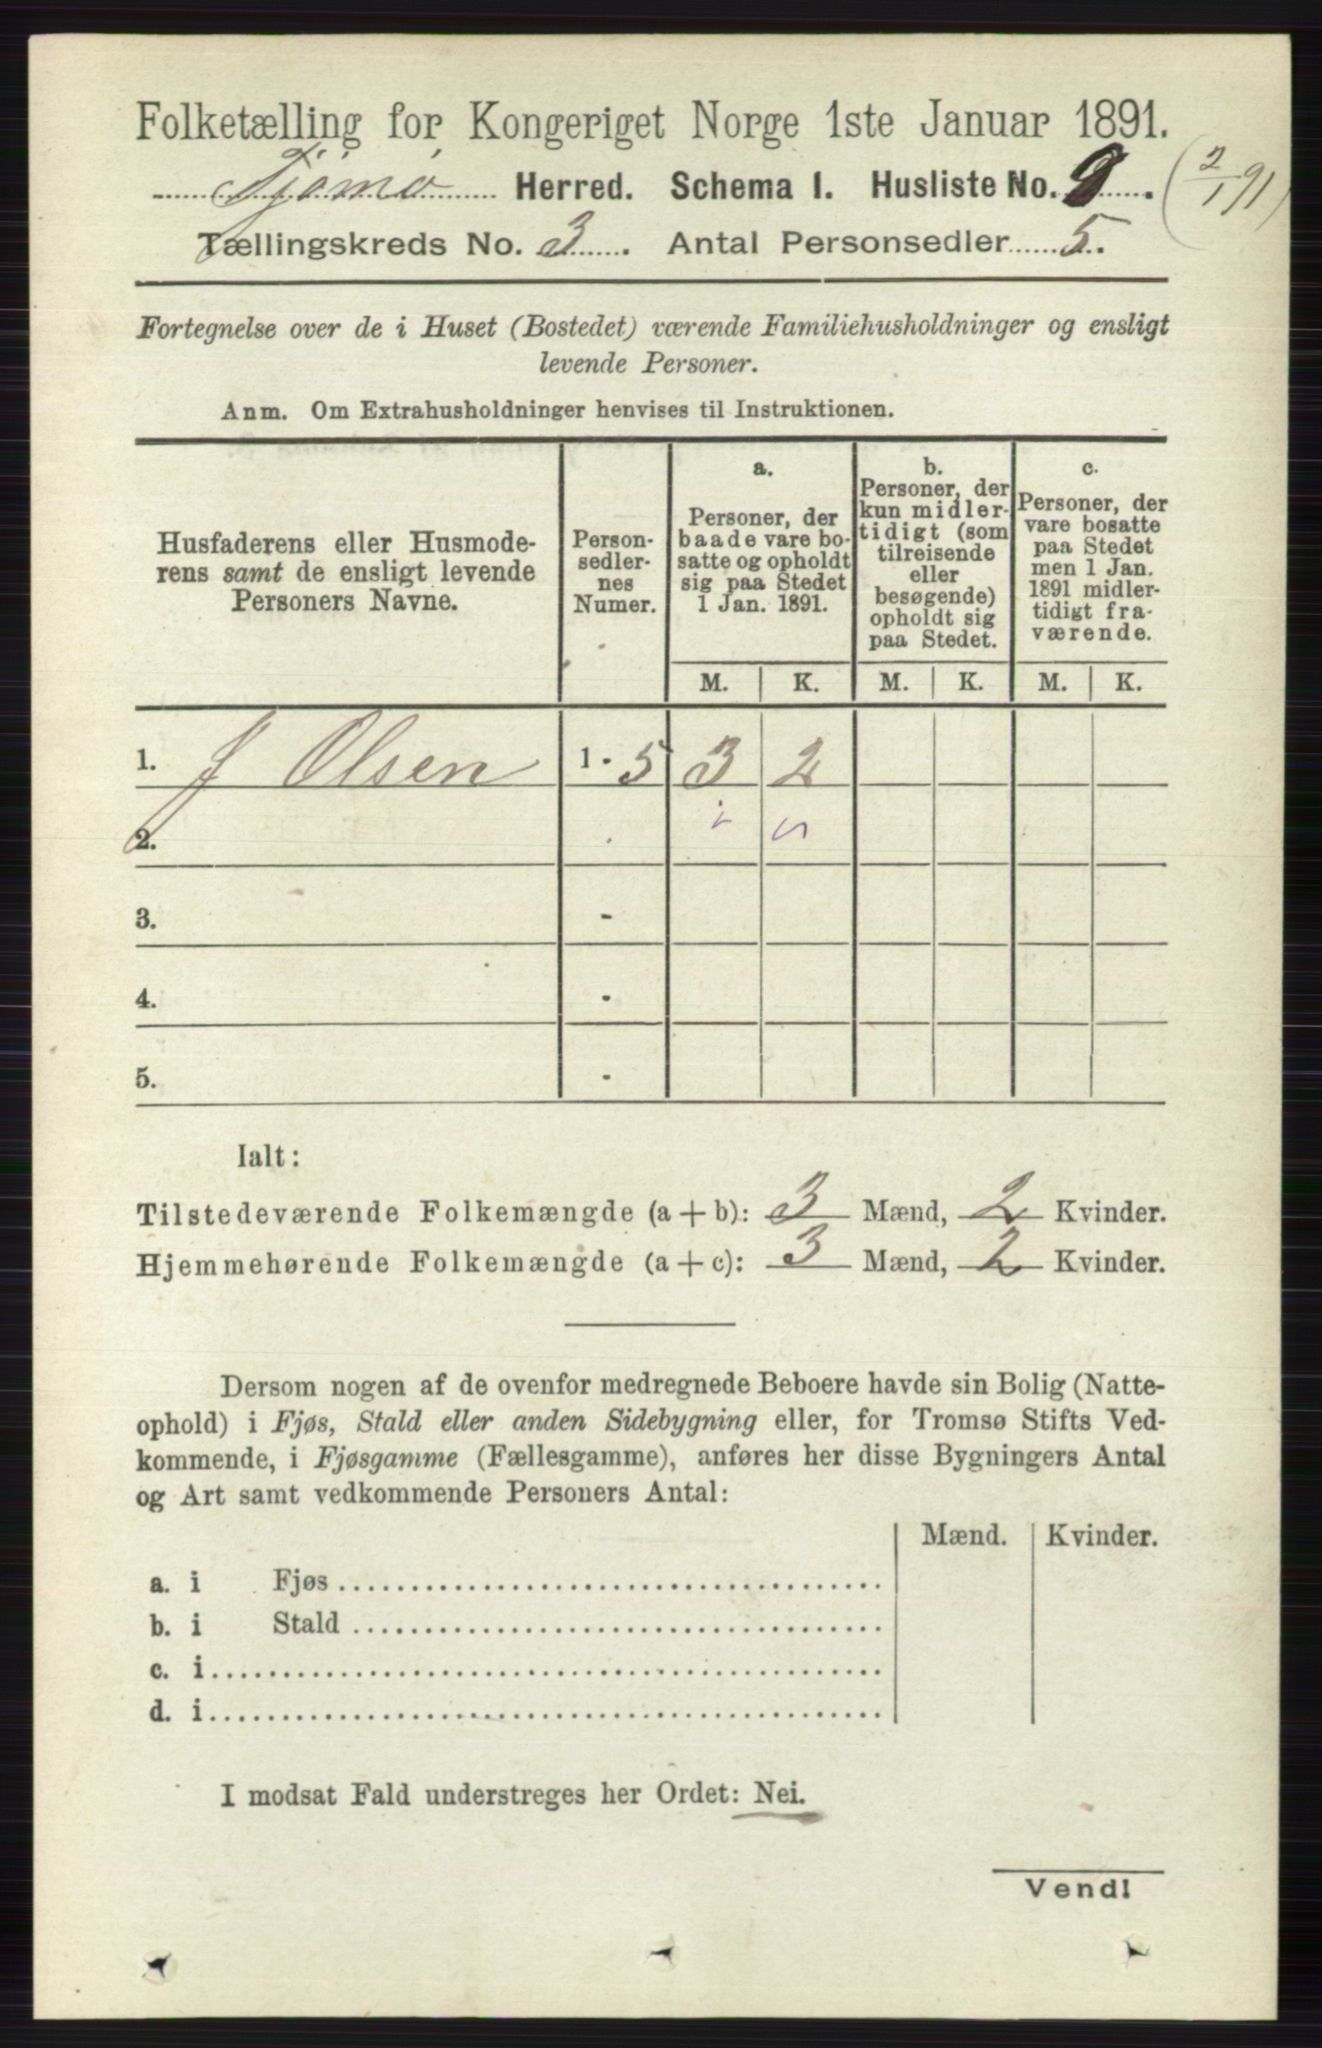 Folketælling for Kongeriget Norge 1ste Januar 1891.
Tjømø Herred. Schema 1. Husliste No. 9. (2/1 91)
Tællingskreds No. 3. Antal Personsedler 5.
Fortegnelse over de i Huset (Bostedet) værende Familiehusholdninger og ensligt
levende Personer.
Anm. Om Extrahusholdninger henvises til Instruktionen.
Husfaderens eller Husmode-
rens samt de ensligt levende
Personers Navne.
Person-
sedler-
nes
Numer.
a.
Personer, der
baade vare bo-
satte og opholdt
sig paa Stedet
1 Jan. 1891.
b.
Personer, der
kun midler-
tidigt (som
tilreisende
eller
besøgende)
opholdt sig
paa Stedet.
c.
Personer, der
vare bosatte
paa Stedet
men 1 Jan.
1891 midler-
tidigt fra-
værende.
M. K. M. K. M. K.
1. J Olsen 1 - 5 3 2
2.
3. -
4. -
5. -
Ialt:
Tilstedeværende Folkemængde (a + b): 3 Mænd, 2 Kvinder.
Hjemmehørende Folkemængde (a + c): 3 Mænd, 2 Kvinder.
Dersom nogen af de ovenfor medregnede Beboere havde sin Bolig (Natte-
ophold) i Fjøs, Stald eller anden Sidebygning eller, for Tromsø Stifts Ved-
kommende, i Fjøsgamme (Fællesgamme), anføres her disse Bygningers Antal
og Art samt vedkommende Personers Antal:
Mænd. Kvinder.
a. i Fjøs
b. i Stald
c. i
d. i
I modsat Fald understreges her Ordet: Nei.
Vend!